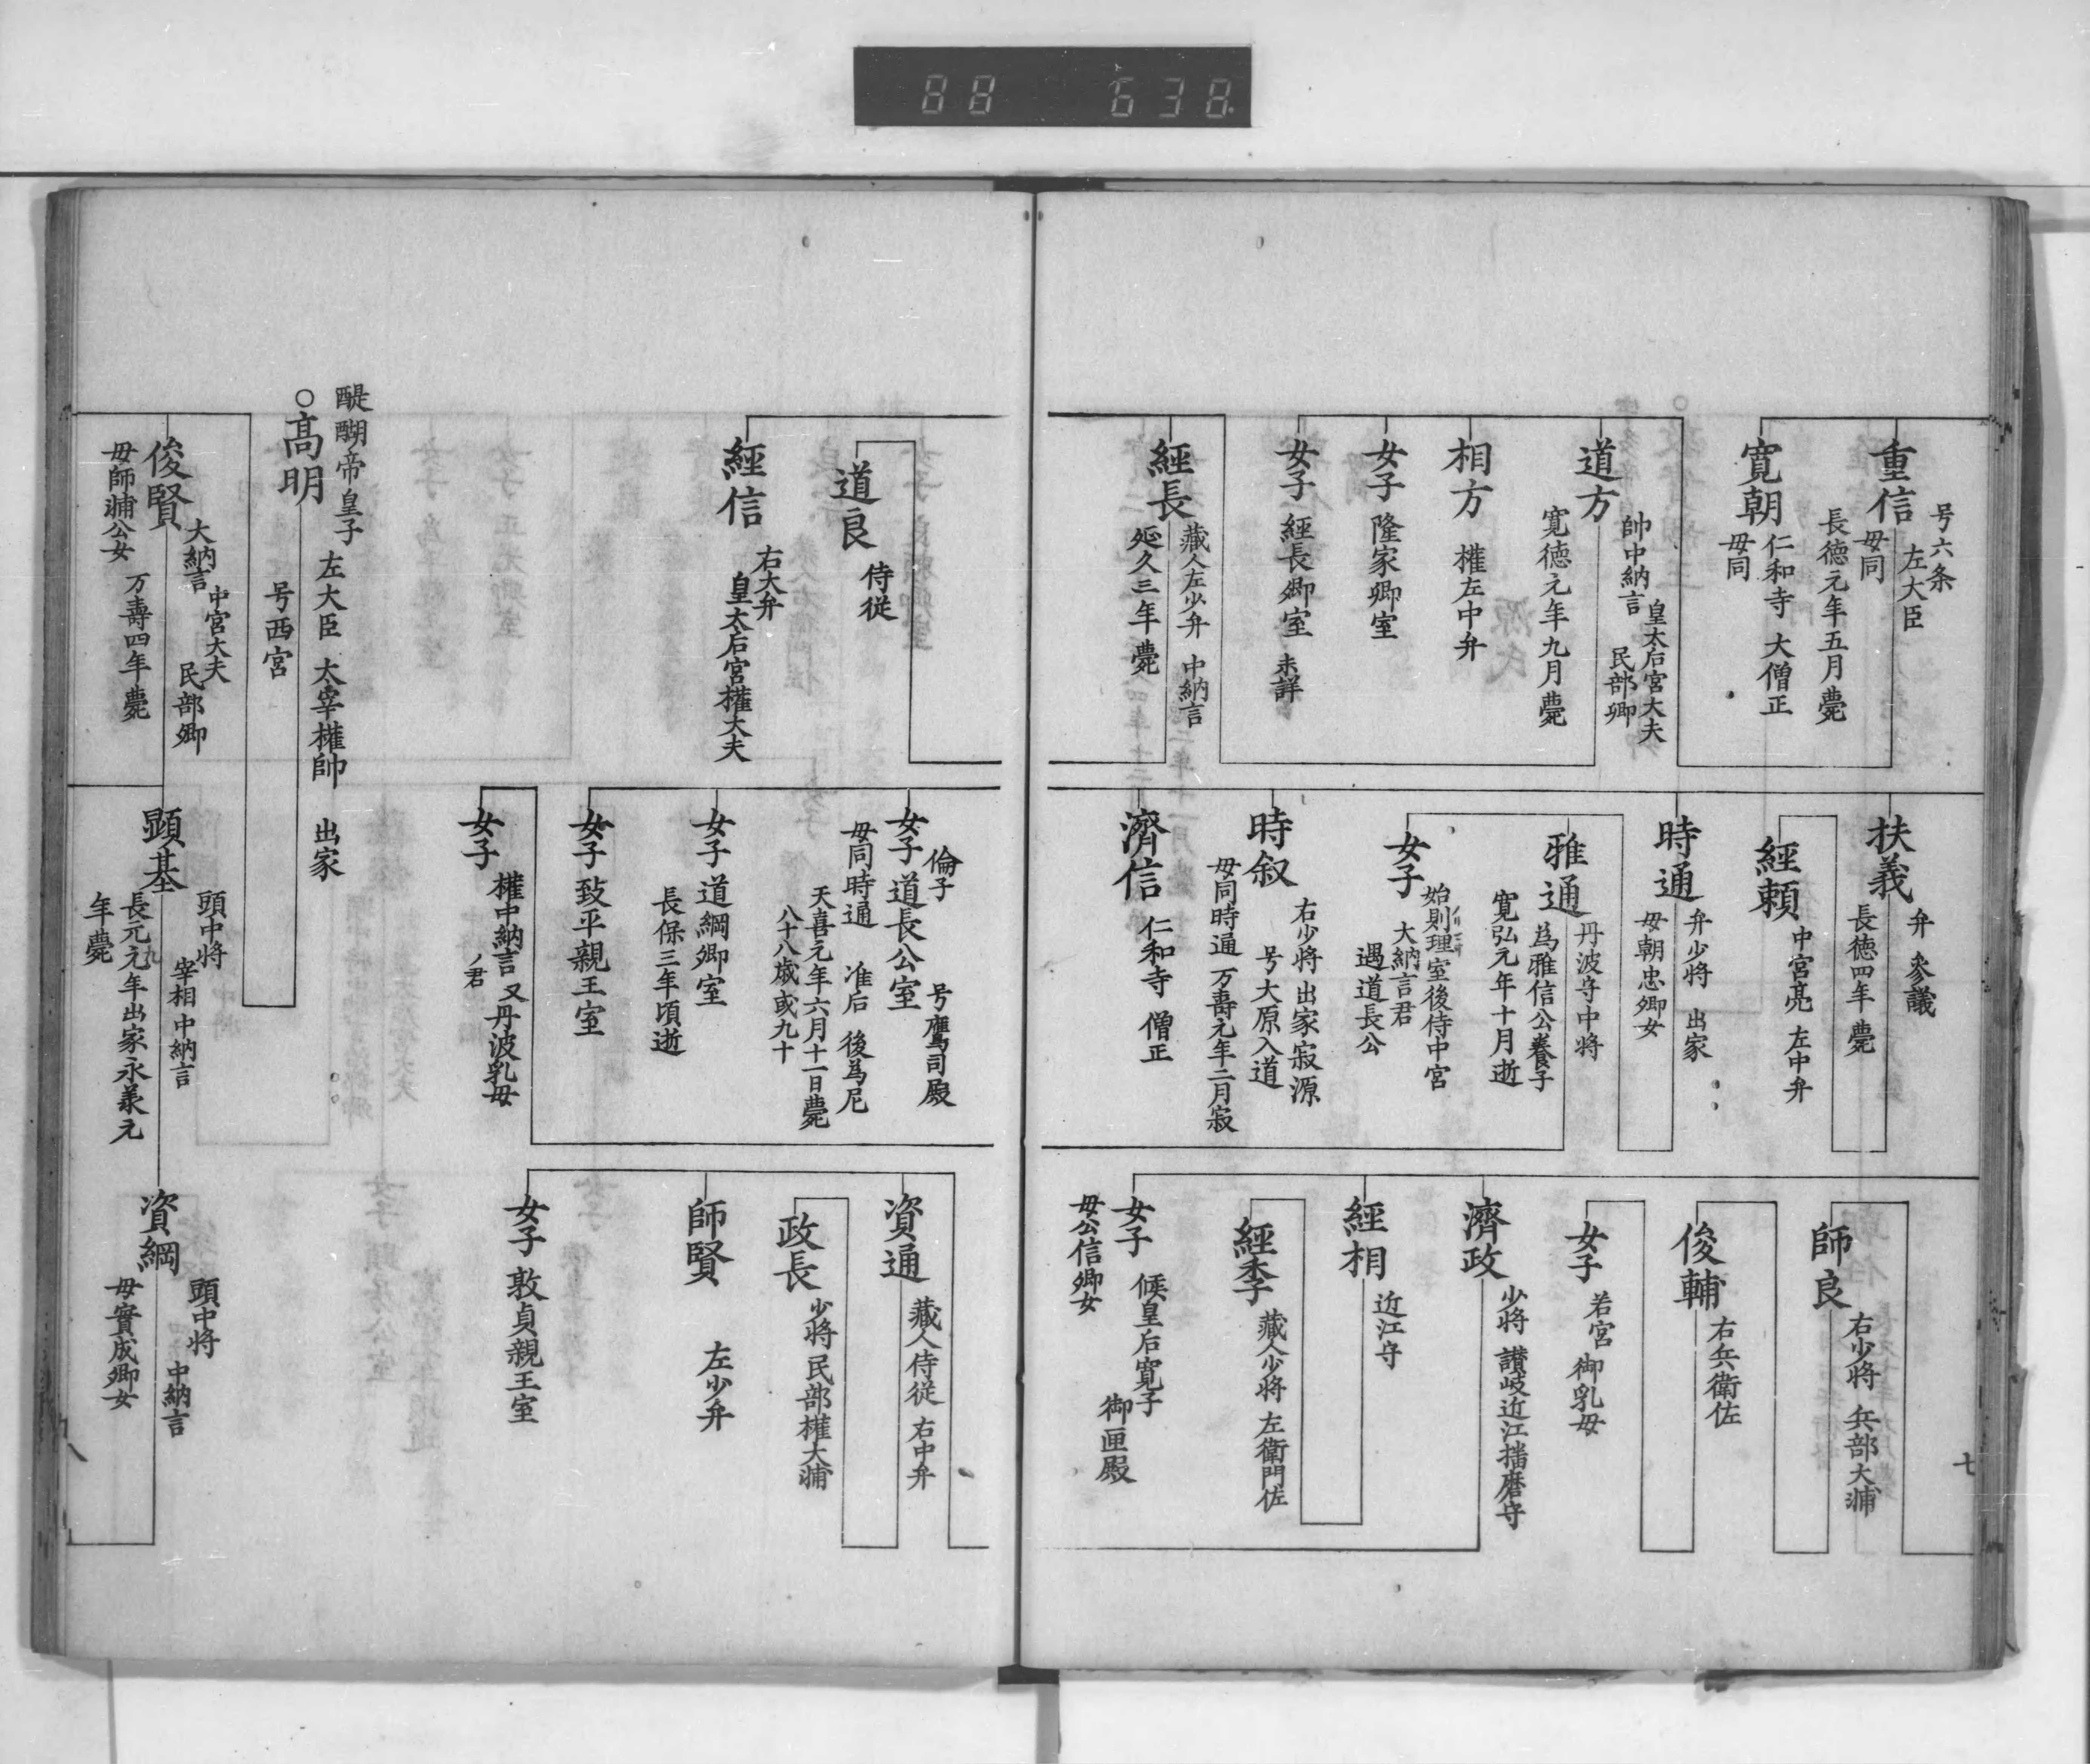 88 638
重信
号六条
左大臣
母同
長徳元年五月薨
寛朝
仁和寺 大僧正
母同
道方
帥中納言 皇太后宮大夫
民部卿
寛徳元年九月薨
相方 権左中弁
女子 隆家卿室
女子 經長卿室 未詳
經長
藏人左少弁 中納言
延久三年薨
扶義
弁 參議
長徳四年薨
經頼
中宮亮 左中弁
時通
弁少将 出家
母朝忠卿女
雅通
丹波守中将
為雅信公養子
寛弘元年十月逝
女子
始則理室後侍中宮
大納言君
遇道長公
時叙
右少将 出家寂源
号大原入道
母同時通 万壽元年二月寂
濟信
仁和寺 僧正
師良
右少将 兵部大輔
俊輔
右兵衛佐
女子
若宮御乳母
濟政
少将 讃岐近江播磨守
經相
近江守
經季
藏人少将 左衛門佐
女子
候皇后寛子
御匣殿
母公信卿女
七
道良
侍従
經信
右大弁
皇太后宮權大夫
醍醐帝皇子
○高明
左大臣 太宰權帥 出家
号西宮
俊賢
大納言 中宮大夫
民部卿
母師輔公女 万壽四年薨
女子
倫子
道長公室
号鷹司殿
母同時通 准后 後為尼
天喜元年六月十一日薨
八十八歳或九十
女子 道綱卿室
長保三年頃逝
女子 致平親王室
女子
權中納言ノ君
又丹波乳母
顕基
頭中将
宰相中納言
長元九年出家永義元
年薨
資通
藏人侍従 右中弁
政長
少将 民部權大輔
師賢 左少弁
女子 敦貞親王室
資綱
頭中将
中納言
母實成卿女